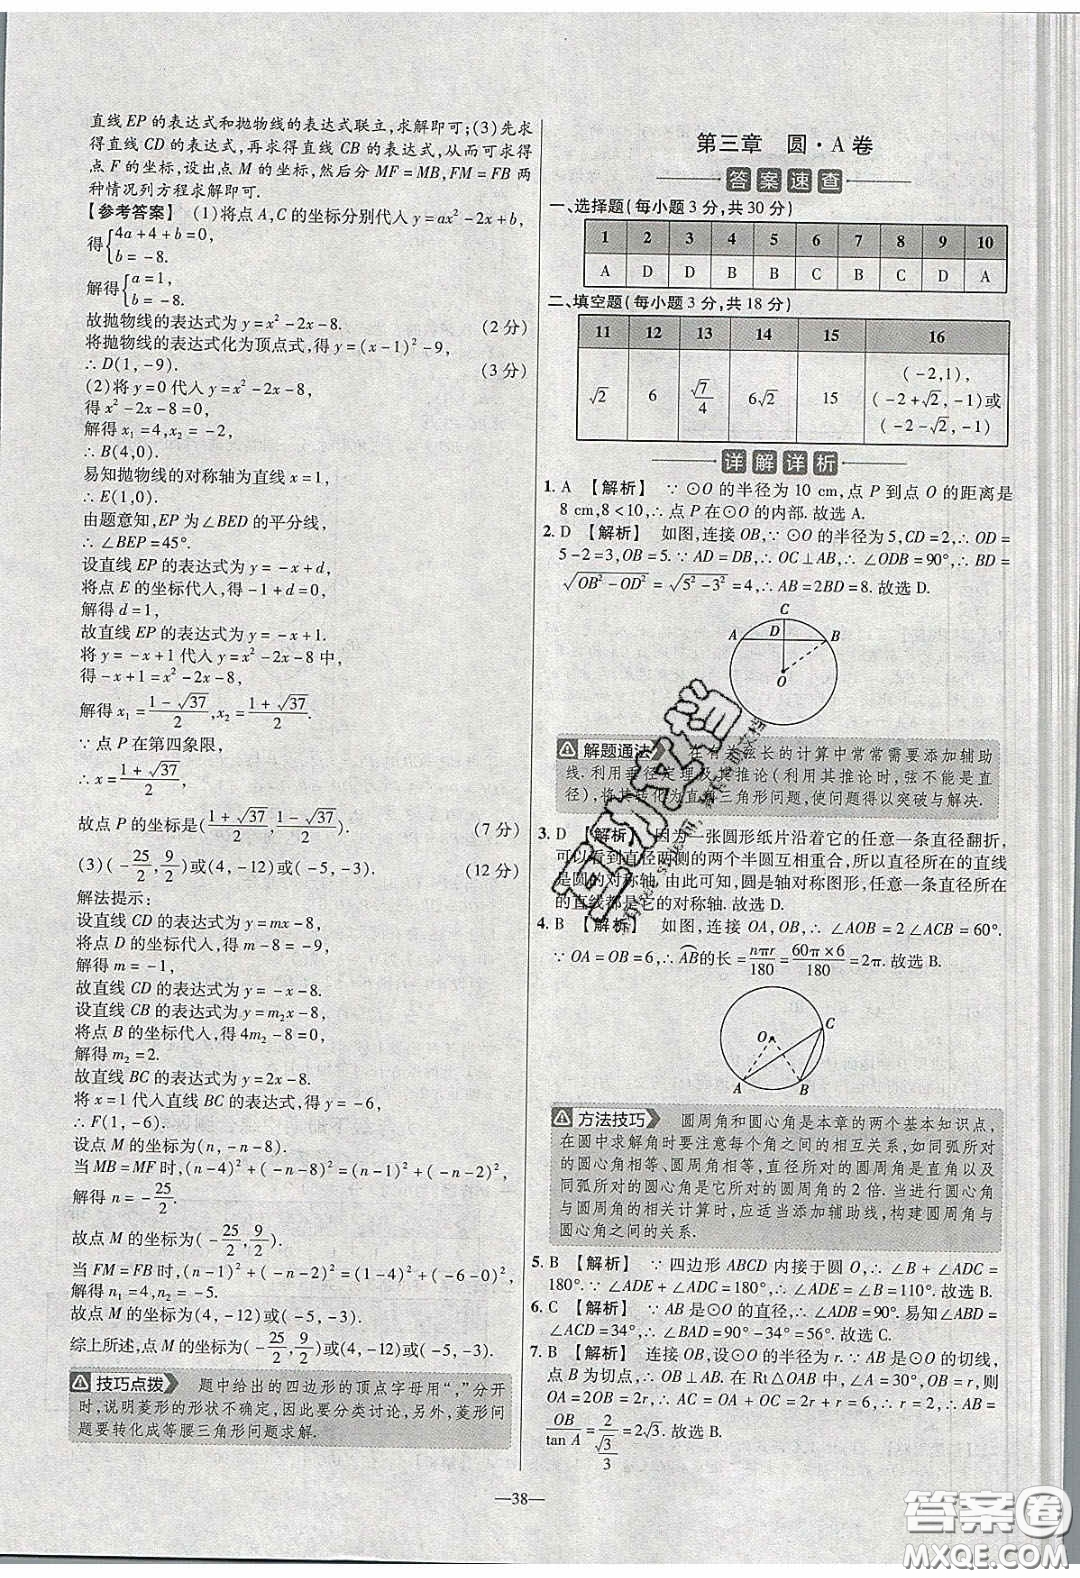 直线 EP 的表达式和抛物线的表达式联立,求解即可;(3)先求
得直线 CD 的表达式,再求得直线 CB 的表达式,从而可求得
点 F 的坐标,设出点 M 的坐标,然后分 MF = MB, FM = FB 两
种情况列方程求解即可.
【参考答案】 (1)将点 A,C 的坐标分别代入 y = ax² - 2x + b,
得{4a + 4 + b = 0, b = -8.
解得{a = 1, b = -8.
故抛物线的表达式为 y = x² - 2x - 8. (2 分)
将抛物线的表达式化为顶点式,得 y = (x - 1)² - 9,
∴ D(1, -9). (3 分)
(2)将 y = 0 代入 y = x² - 2x - 8,
得 x² - 2x - 8 = 0,
解得 x₁ = 4, x₂ = -2,
∴ B(4,0).
易知抛物线的对称轴为直线 x = 1,
∴ E(1,0).
由题意知,EP 为 ∠BED 的平分线,
∴ ∠BEP = 45°.
设直线 EP 的表达式为 y = -x + d,
将点 E 的坐标代入,得 -1 + d = 0,
解得 d = 1,
故直线 EP 的表达式为 y = -x + 1.
将 y = -x + 1 代入 y = x² - 2x - 8 中,
得 -x + 1 = x² - 2x - 8,
解得 x₁ = (1 - √37)/2, x₂ = (1 + √37)/2.
∵ 点 P 在第四象限,
∴ x = (1 + √37)/2,
故点 P 的坐标是((1 + √37)/2, (1 - √37)/2). (7 分)
(3)(-25/2, 9/2)或(4, -12)或(-5, -3). (12 分)
解法提示:
设直线 CD 的表达式为 y = mx - 8,
将点 D 的坐标代入,得 m - 8 = -9,
解得 m = -1,
故直线 CD 的表达式为 y = -x - 8.
设直线 CB 的表达式为 y = m₂x - 8,
将点 B 的坐标代入,得 4m₂ - 8 = 0,
解得 m₂ = 2.
故直线 BC 的表达式为 y = 2x - 8.
将 x = 1 代入直线 BC 的表达式,得 y = -6,
∴ F(1, -6).
设点 M 的坐标为(n, -n - 8).
当 MB = MF 时,(n - 4)² + (-n - 8)² = (n - 1)² + (-n - 2)²,
解得 n = -25/2.
故点 M 的坐标为(-25/2, 9/2).
当 FM = FB 时,(n - 1)² + (-n - 2)² = (4 - 1)² + (0 + 6)²,
解得 n₁ = 4, n₂ = -5.
故点 M 的坐标为(4, -12)或(-5, -3).
综上所述,点 M 的坐标为(-25/2, 9/2)或(4, -12)或(-5, -3).
技巧点拨 题中给出的四边形的顶点字母用“,”分开
时,说明菱形的形状不确定,因此要分类讨论,另外,菱形问
题要转化成等腰三角形问题求解.
第三章 圆·A 卷
答案速查
一、选择题(每小题 3 分,共 30 分)
1 2 3 4 5 6 7 8 9 10
A D D B B C B C D A
二、填空题(每小题 3 分,共 18 分)
11 12 13 14 15 16
√2 6 √7/4 6√2 15 (-2,1),(-2+√2,-1)或(-2-√2,-1)
详解详析
1. A 【解析】 ∵ ⊙O 的半径为 10 cm,点 P 到点 O 的距离是
8 cm,8 < 10,∴ 点 P 在 ⊙O 的内部. 故选 A.
2. D 【解析】 如图,连接 OB,∵ ⊙O 的半径为 5,CD = 2,∴ OD =
5 - 2 = 3,OB = 5. ∵ AD = DB,∴ OC ⊥ AB,∴ ∠ODB = 90°,∴ BD =
√(OB² - OD²) = √(5² - 3²) = 4,∴ AB = 2BD = 8. 故选 D.
C
A D B
O
解题通法 在有关弦长的计算中常常需要添加辅助
线. 利用垂径定理及其推论(利用其推论时,弦不能是直
径),将其转化为直角三角形问题,使问题得以突破与解决.
3. D 【解析】 因为一张圆形纸片沿着它的任意一条直径翻折,
可以看到直径两侧的两个半圆互相重合,所以直径所在的直线
是圆的对称轴. 由此可知,圆是轴对称图形,任意一条直径所在
的直线都是它的对称轴. 故选 D.
4. B 【解析】 如图,连接 OA,OB,∴ ∠AOB = 2∠ACB = 60°.
∵ OA = OB = 6,∴ AB的长 = nπr/180 = 60π × 6/180 = 2π. 故选 B.
O C
A B
方法技巧 圆周角和圆心角是本章的两个基本知识点,
在圆中求解角时要注意每个角之间的相互关系,如同弧所对
的圆心角相等、圆周角相等,直径所对的圆周角是直角以及
同弧所对的圆心角是它所对的圆周角的 2 倍. 当进行圆心角
与圆周角的相关计算时,应适当添加辅助线,构建圆周角与
圆心角之间的关系.
5. B 【解析】 ∵ 四边形 ABCD 内接于圆 O,∴ ∠B + ∠ADC =
180°. ∵ ∠ADE + ∠ADC = 180°,∴ ∠ADE = ∠B = 110°. 故选 B.
6. C 【解析】 ∵ AB 是 ⊙O 的直径,∴ ∠ADB = 90°. 易知 ∠ABD
= ∠ACD = 34°,∴ ∠BAD = 90° - 34° = 56°. 故选 C.
7. B 【解析】 连接 OB,设 ⊙O 的半径为 r. ∵ AB 是 ⊙O 的切线,
点 B 为切点,∴ OB ⊥ AB. 在 Rt△OAB 中,∠A = 30°,OB = r,则
OA = 2OB = 2r. ∵ AC = 2,∴ OA = OC + AC = 2r = r + 2,∴ r = 2,∴ AB =
OB/tan A = 2/(√3/3) = 2√3. 故选 B.
—38—
答案圈
MXQE.COM